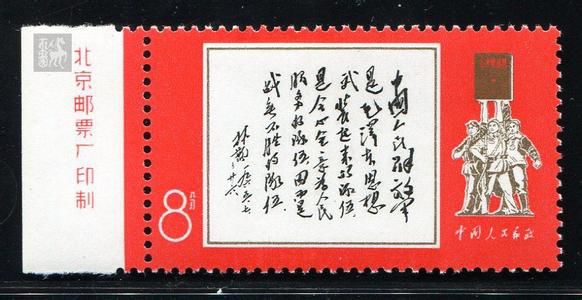 北京邮票厂印制
中国人民解放军
是毛泽东思想
武装起来的队伍
是全心全意为人民
服务的队伍因而是
战无不胜的队伍
林彪
8分
中国人民邮政